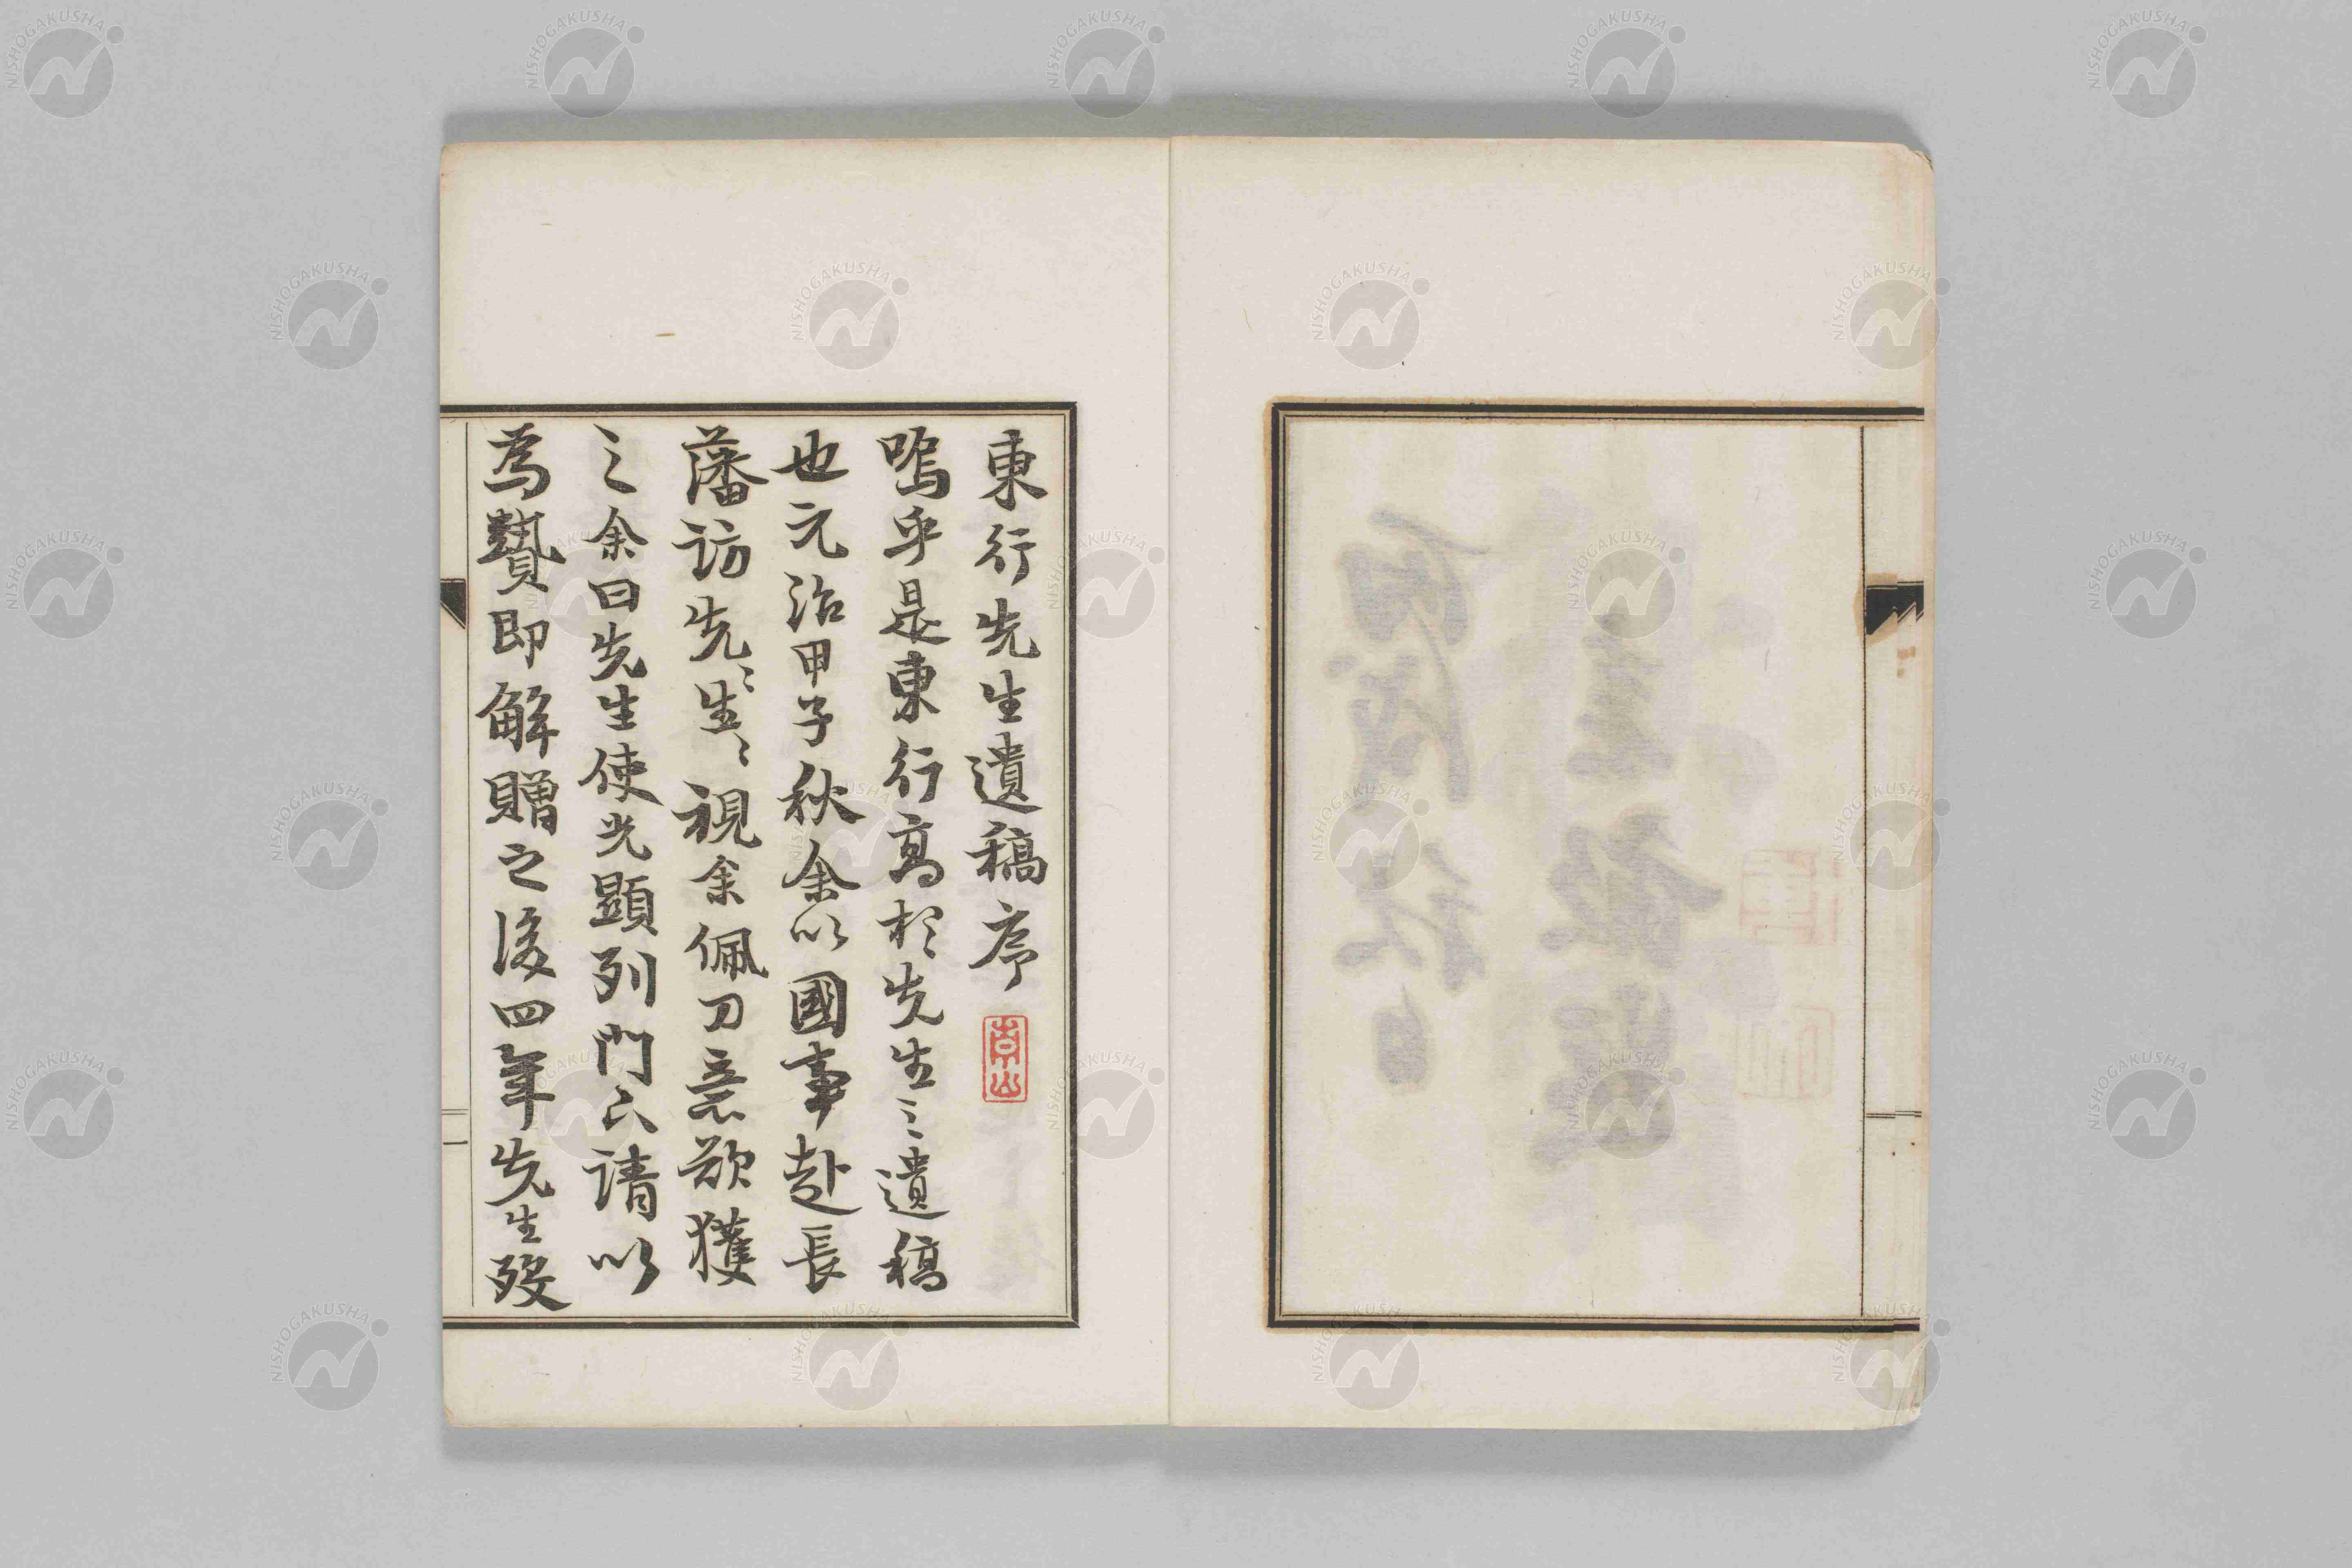 東行先生遺稿序
嗚乎是東行高杉先生之遺稿
也元治甲子秋余以國事赴長
藩訪先〻生〻視余佩刀意欲獲
之余曰先生使光顯列門下請以
為贄即解贈之後四年先生歿
NISHOGAKUSHA